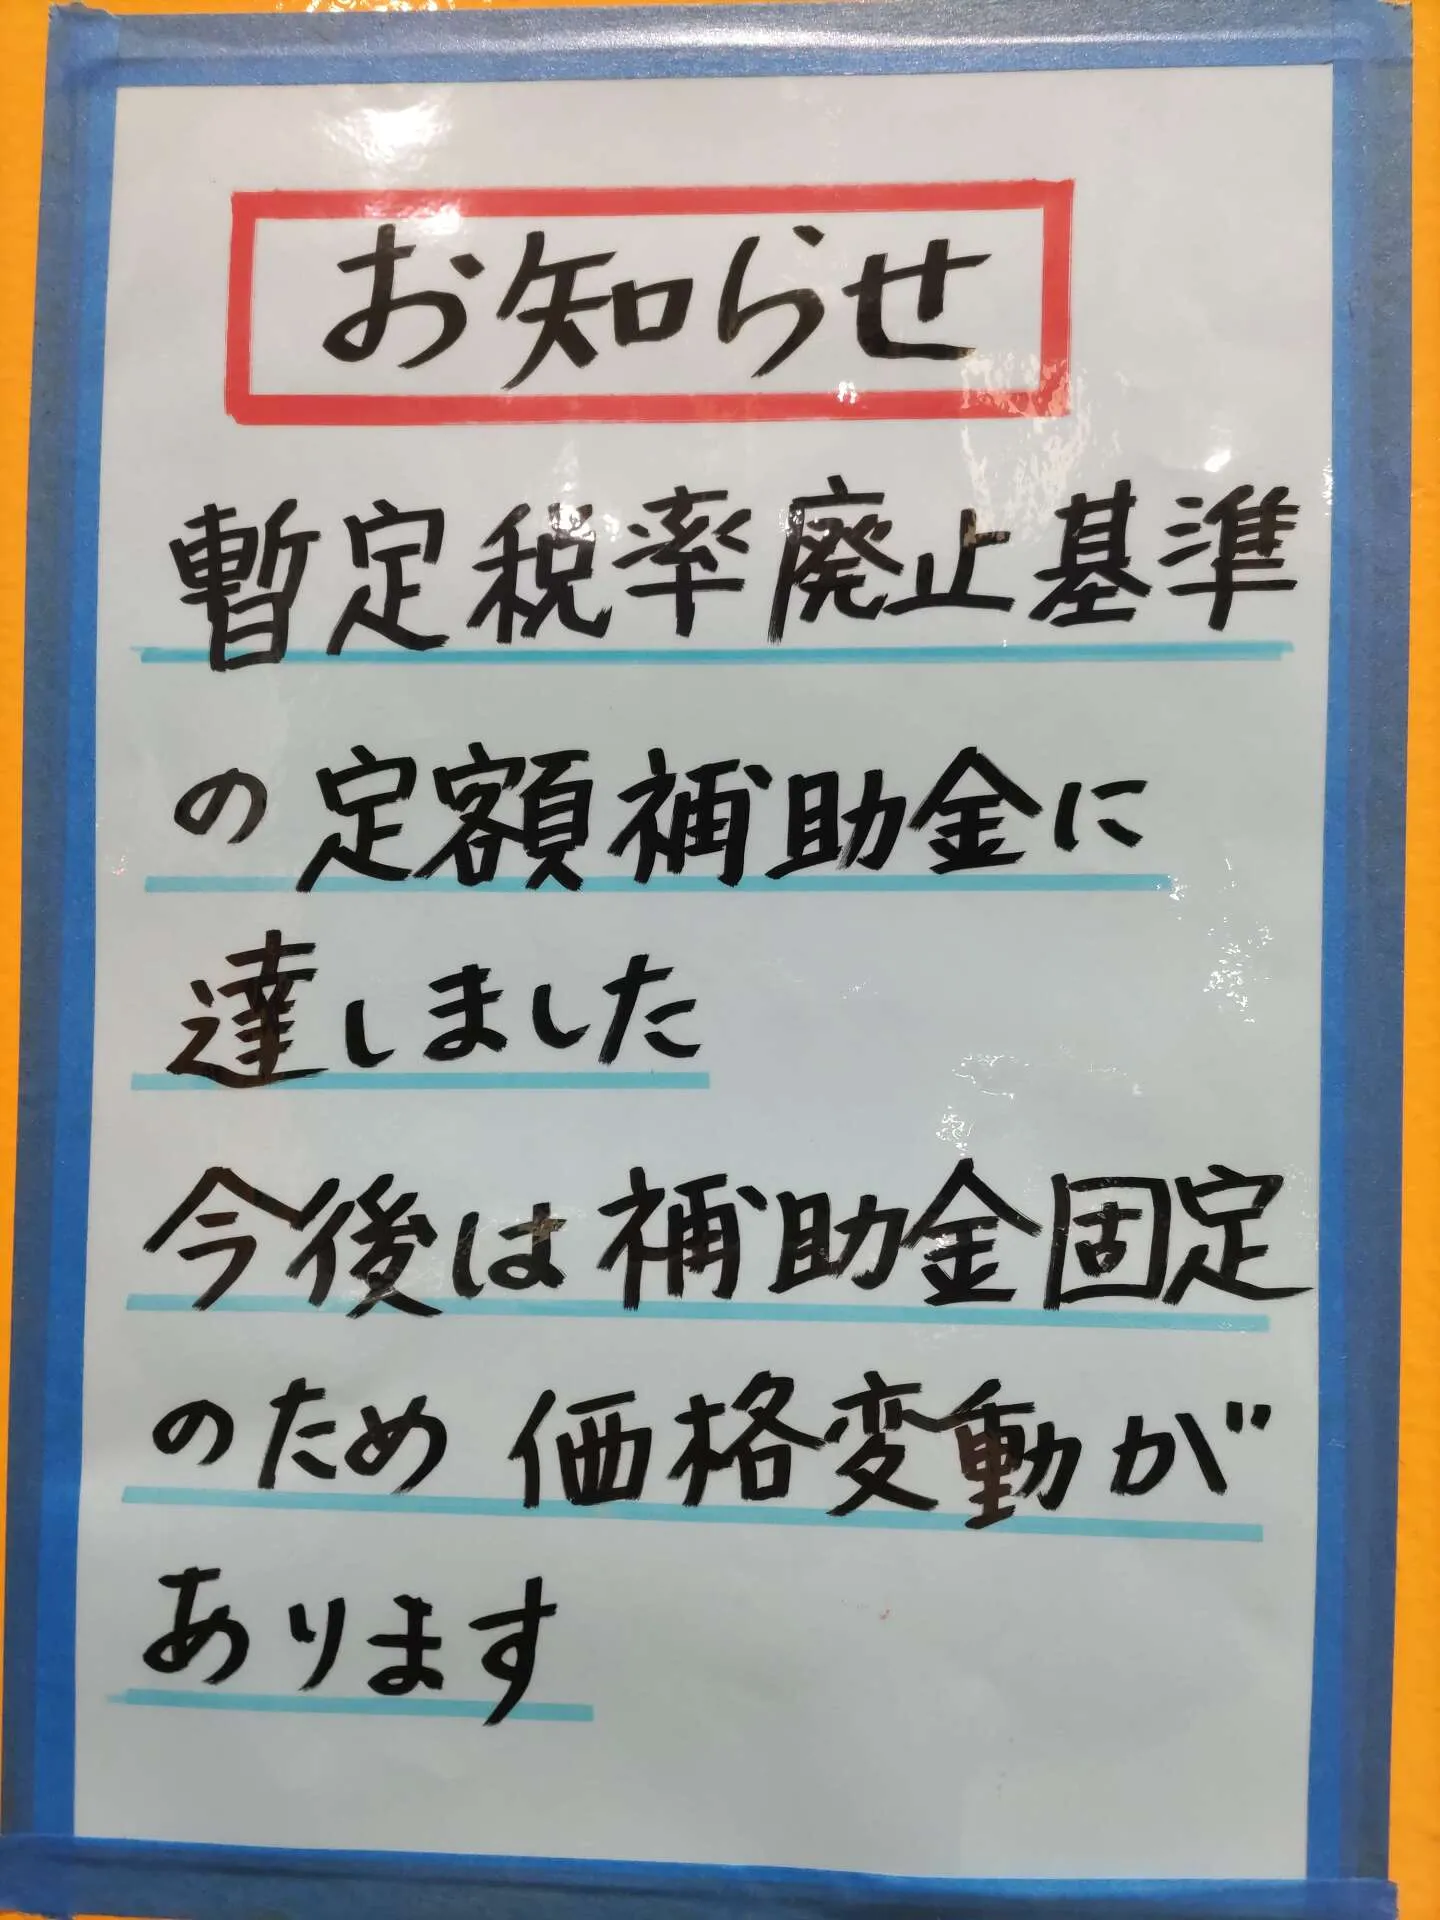 お知らせ
暫定税率廃止基準
の定額補助金に
達しました
今後は補助金固定
のため価格変動が
あります